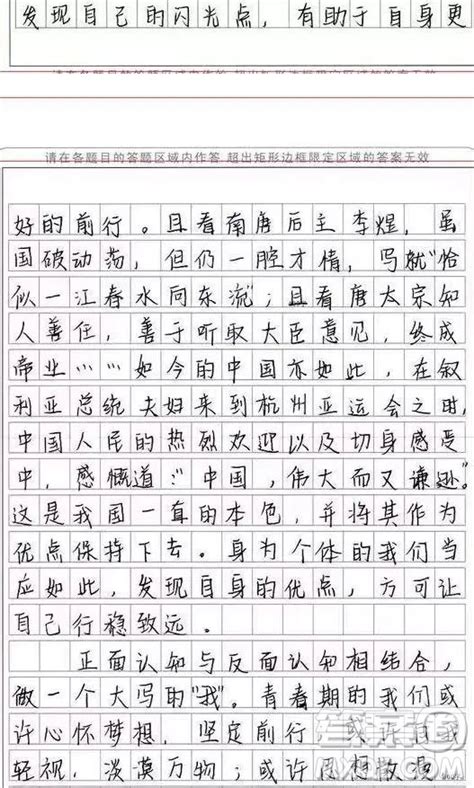 发现自己的闪光点，有助于自身更
请在各题目的答题区域内作答 超出矩形边框限定区域的答案无效
请在各题目的答题区域内作答 超出矩形边框限定区域的答案无效
好的前行。且看南唐后主李煜，虽
国破动荡，但仍一腔才情，写就“恰
似一江春水向东流”；且看唐太宗知
人善任，善于听取大臣意见，终成
帝业……如今的中国亦如此，在叙
利亚总统夫妇来到杭州亚运会之时，
中国人民的热烈欢迎以及切身感受
中，感慨道：“中国，伟大而又谦逊。”
这是我国一直的本色，并将其作为
优点保持下去。身为个体的我们当
应如此，发现自身的优点，方可让
自己行稳致远。
正面认知与反面认知相结合，
做一个大写的“我”。青春期的我们或
许心怀梦想，坚定前行；或许自我
轻视，淡漠万物；或许思想散漫